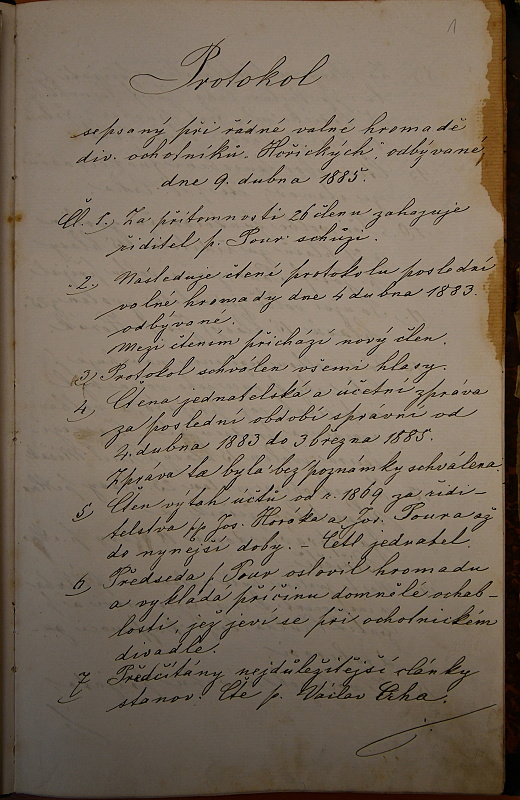 1
Protokol
sepsaný při řádné valné hromadě
div. ochotníků „Hořických", odbývané
dne 9. dubna 1885.
Čl. 1.) Za přítomnosti 26 členu zahajuje
ředitel p. Pour schůzi.
2.) Následuje čtení protokolu poslední
valné hromady dne 4 dubna 1883.
odbývané.
Mezi čtením přichází nový člen.
3.) Protokol schválen všemi hlasy.
4.) Čtena jednatelská a účetní zpráva
za poslední období správní od
4. dubna 1883 do 3 března 1885.
Zpráva ta byla bez poznámky schválena.
5.) Čten výtah účtů od r. 1869 za ředi–
telstva pp Jos. Horáka a Jos. Poura až
do nynější doby. – Četl jednatel.
6.) Předseda p. Pour oslovil hromadu
a vykládá příčinu domnělé ochab–
losti, jež jeví se při ochotnickém
divadle.
7.) Předčítány nejdůležitější články
stanov: Čte p. Václav Crha.